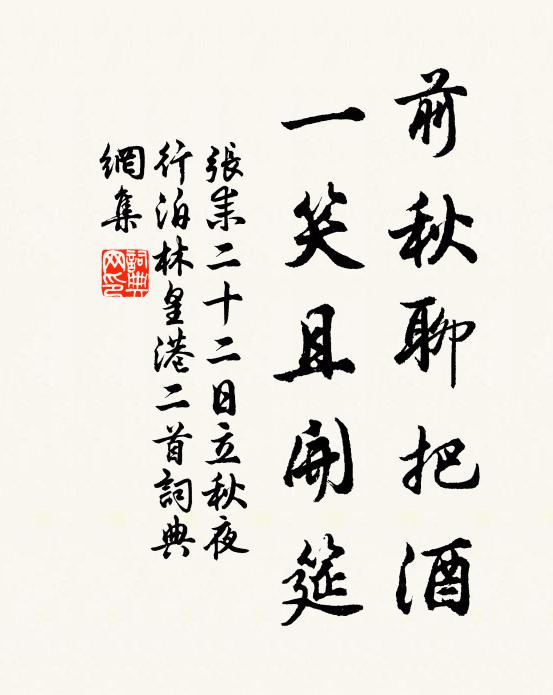 前秋聊把酒
一笑且開筵
張耒二十二日立秋夜
行泊林皇港二首詞典
網集
詞典網印